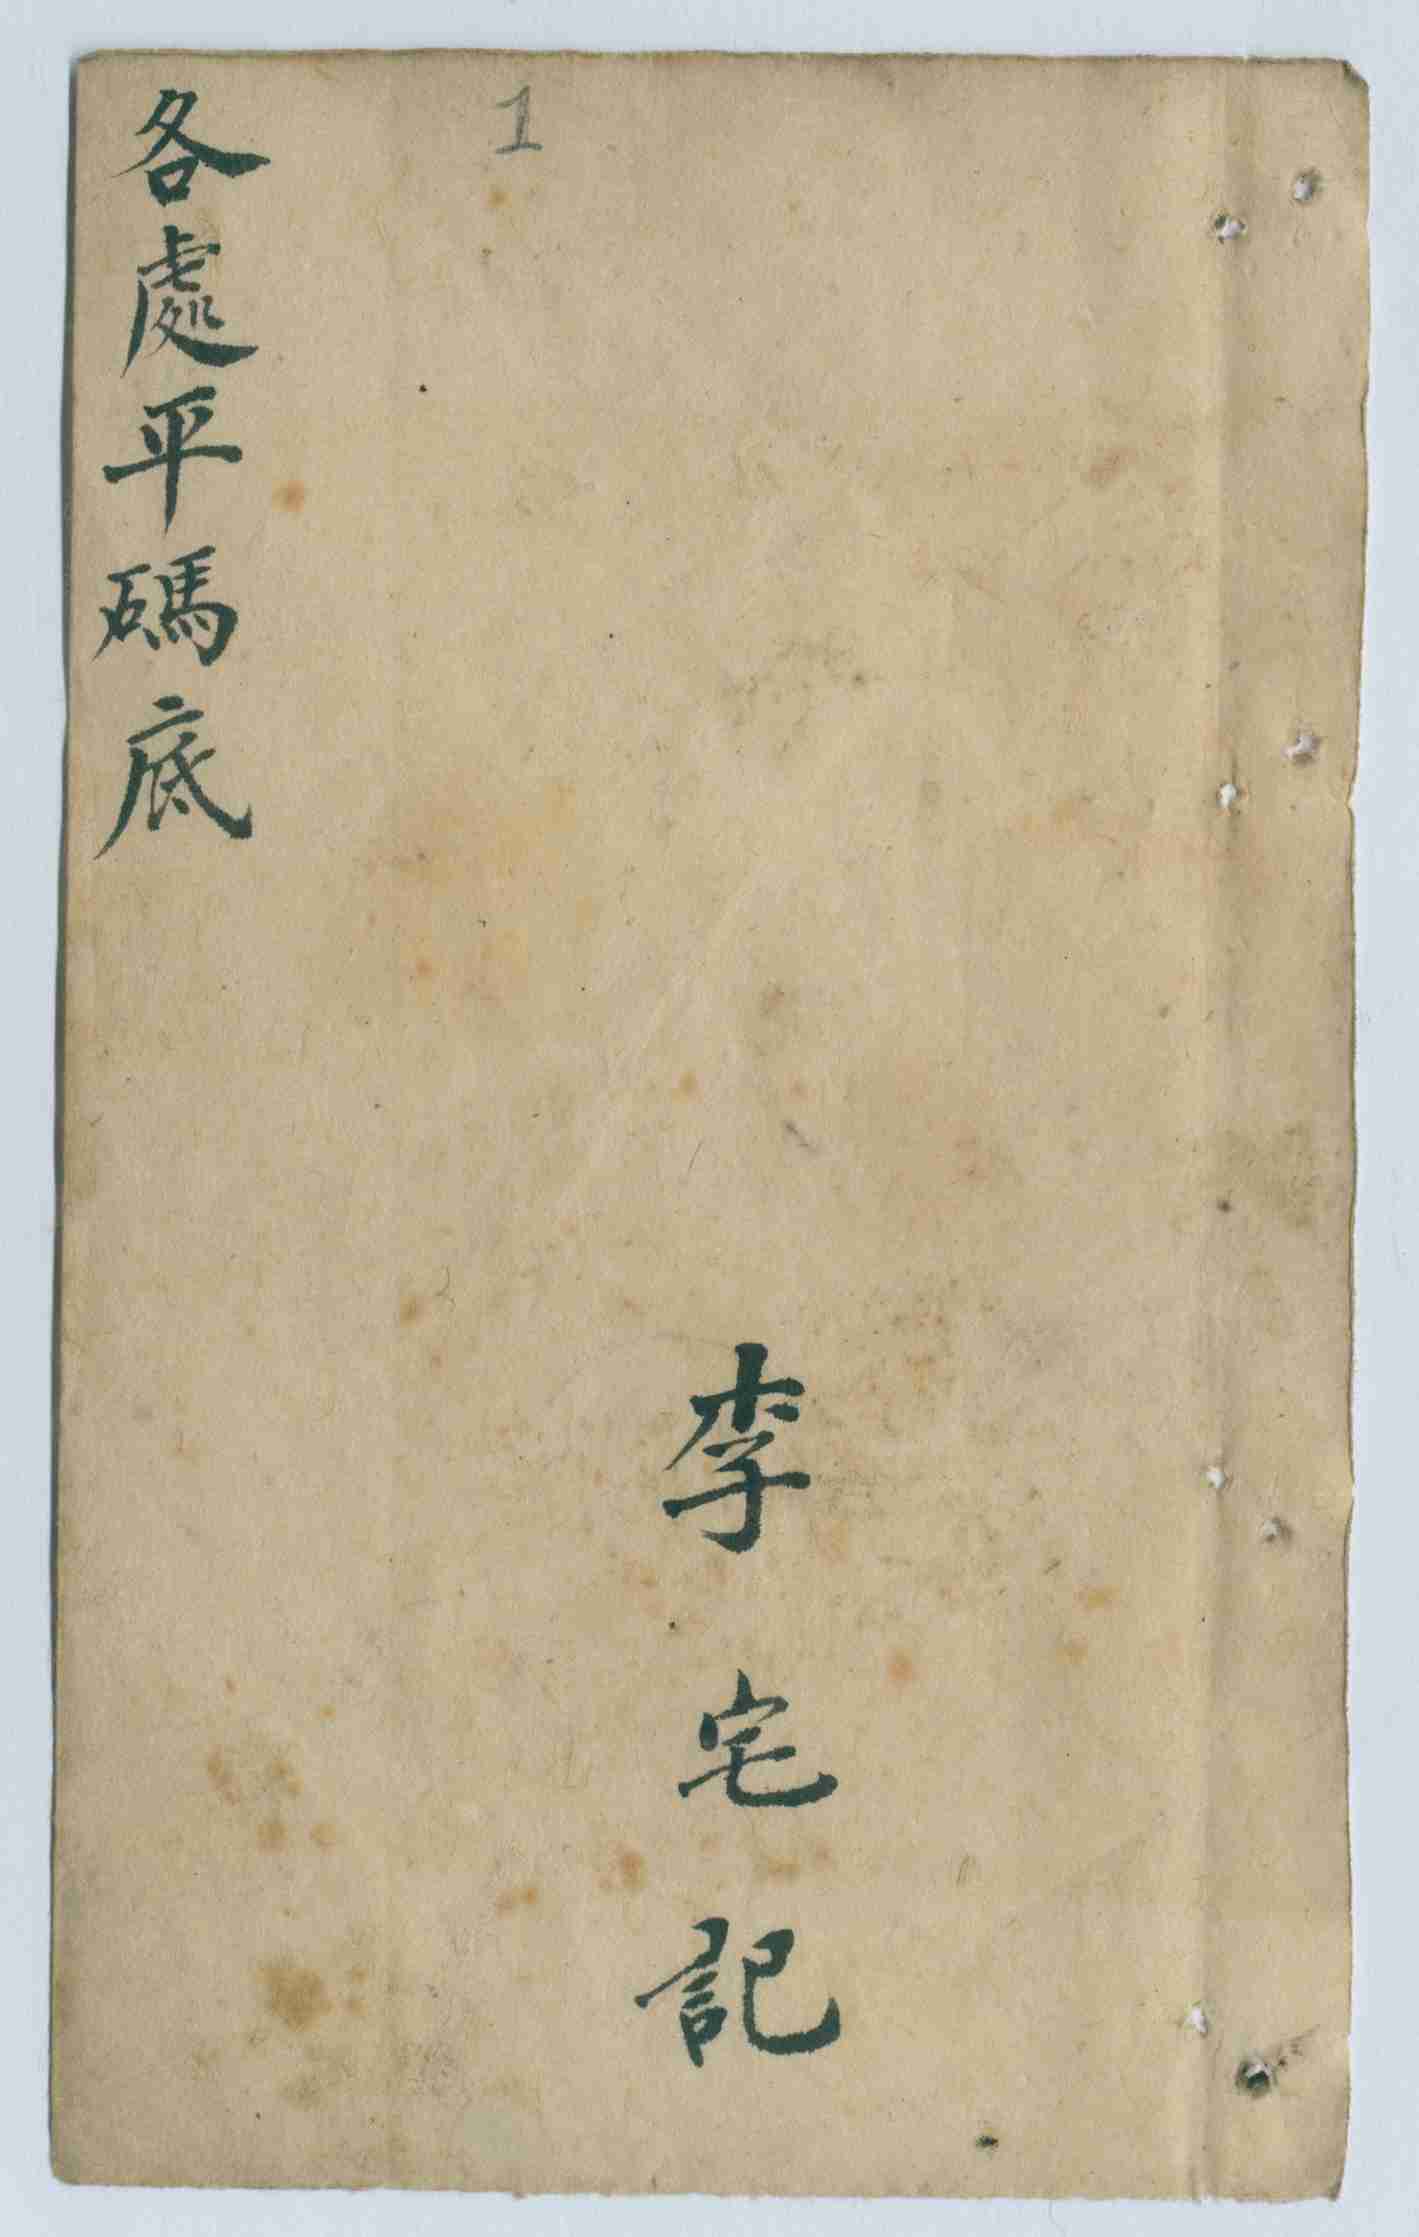 各處平碼底
1
李宅記